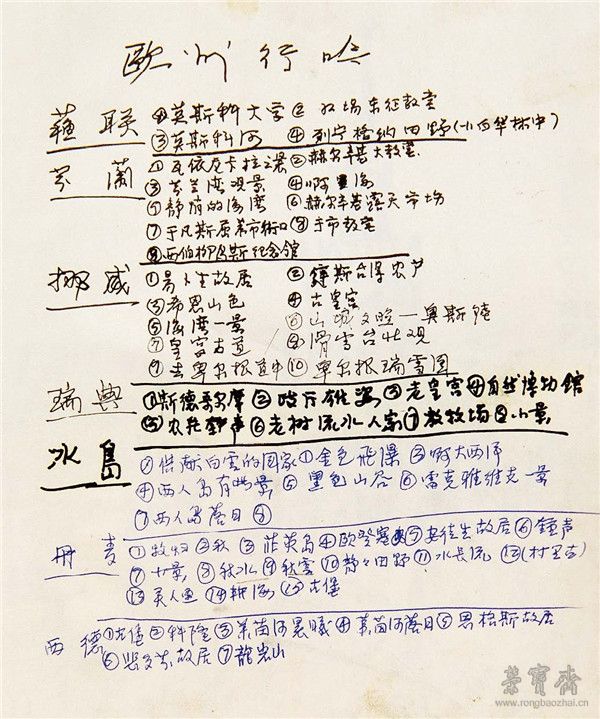 欧洲行吟
蘓联 ①莫斯科大学② 牧场东征教堂
③莫斯科河 ④列宁格纳田野(小西华林中)
芬蘭 ①瓦依尼卡拉之晨②赫尔辛基大教堂
③芬兰湾观景 ④啊 海
⑤静荫的海湾 ⑥赫尔辛基露天市场
⑦于凡斯屈莱市街口⑧于市教堂
⑨西伯柳斯纪念馆
挪威 ①易卜生故居 ②鐏斯台得农户
③希恩山色 ④古皇宫
⑤海湾一景 ⑥山城夕照—奥斯陆
⑦皇宫古道 ⑧滑雪台壮观
⑨去卑尔根道中⑩卑尔根瑞雪图
瑞典 ①斯德哥尔摩②政厅雄姿③老皇宫④自然博物館
⑤农苑鈡声⑥老树流水人家⑦教牧场⑧小景
冰島 ①供献白雲的国家①金色飛瀑③啊大西洋
④西人島有些景⑤黑色山谷⑥雷克雅维克一景
⑦西人島落日⑧
丹麦 ①牧归②秋③菲英岛④欧登塞⑤安徒生故居⑥鐘声
⑦小景⑧秋水⑨秋雲⑩静静田野⑪水长流⑫(村里方)
⑬美人鱼⑭耕海⑮古堡
西德①古堡②科隆③莱茵河晨曦④莱茵河落日⑤恩格斯故居
⑥贝多芬故居⑦龍岩山
荣寶斋
www.rongbaozhai.cn